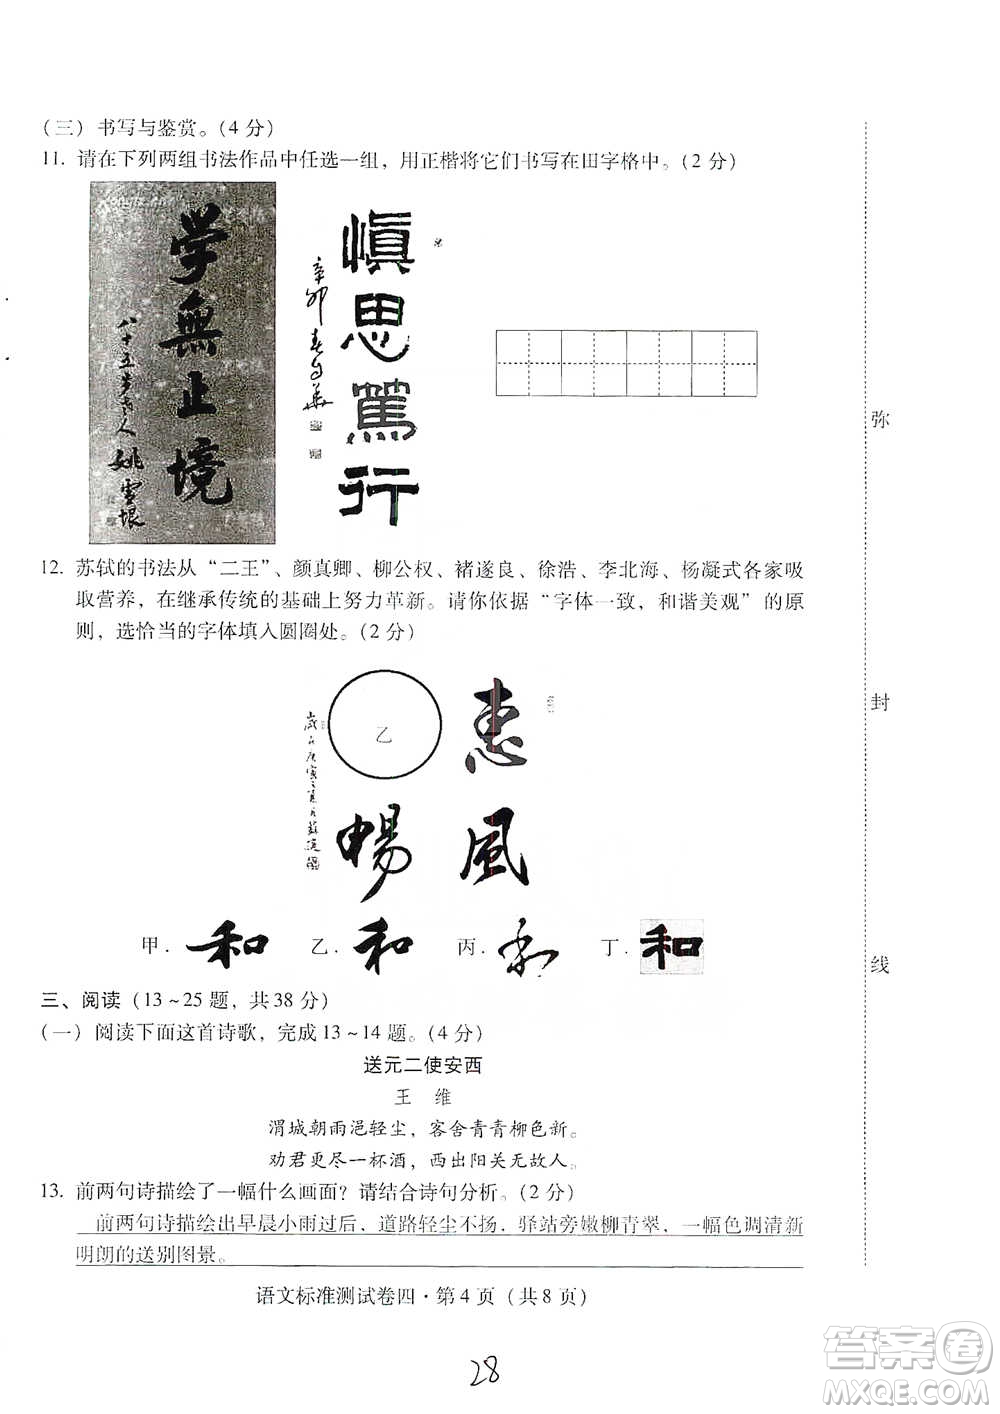 （三）书写与鉴赏。（4 分）
11. 请在下列两组书法作品中任选一组，用正楷将它们书写在田字格中。（2 分）
学無止境
八十五岁老人
姚雪垠
慎思篤行
辛卯春
12. 苏轼的书法从“二王”、颜真卿、柳公权、褚遂良、徐浩、李北海、杨凝式各家吸
取营养，在继承传统的基础上努力革新。请你依据“字体一致，和谐美观”的原
则，选恰当的字体填入圆圈处。（2 分）
惠風
乙
暢
甲．和 乙．和 丙．和 丁．和
三、阅读（13～25 题，共 38 分）
（一）阅读下面这首诗歌，完成 13～14 题。（4 分）
送元二使安西
王 维
渭城朝雨浥轻尘，客舍青青柳色新。
劝君更尽一杯酒，西出阳关无故人。
13. 前两句诗描绘了一幅什么画面？请结合诗句分析。（2 分）
前两句诗描绘出早晨小雨过后，道路轻尘不扬，驿站旁嫩柳青翠，一幅色调清新
明朗的送别图景。
语文标准测试卷四·第 4 页（共 8 页）
28
弥
封
线
答案圈
MXQE.COM